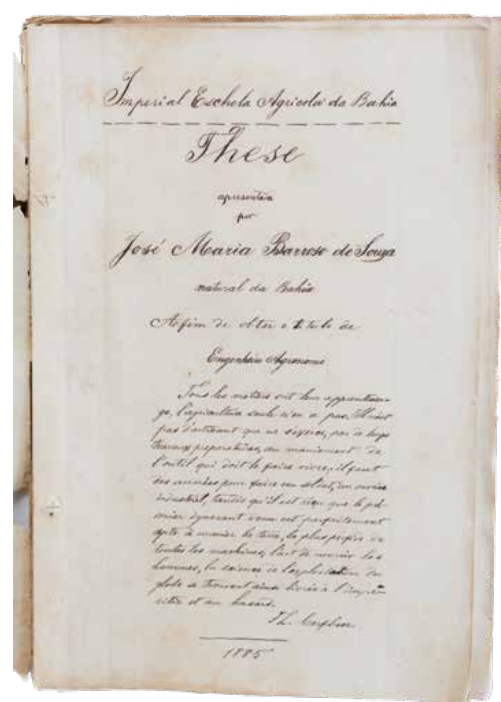 Imperial Eschola Agricola da Bahia
These
apresentada
por
José Maria Barroso de Souza
natural da Bahia
Afim de obter o titulo de
Engenheiro Agronomo
Tous les metiers ont leur apprentissa-
ge, l'agriculture seule n'en a pas. Il n'est
pas d'artisant que ne s'exerce, par de longs
travaux preparatoires, au maniement de
l'outil qui doit le faire vivre; il faut
des années pour faire un soldat, un ouvrier
industriel, tandis qu'il est reçu que le pre-
mier ignorant venu est parfaitement
apte à manier la terre, la plus parfaite de
toutes les machines; l'art de nourrir les
hommes, la science de l'exploitation du
globe se trouvent ainsi livrés à l'impe-
ritie et au hasard.
1885